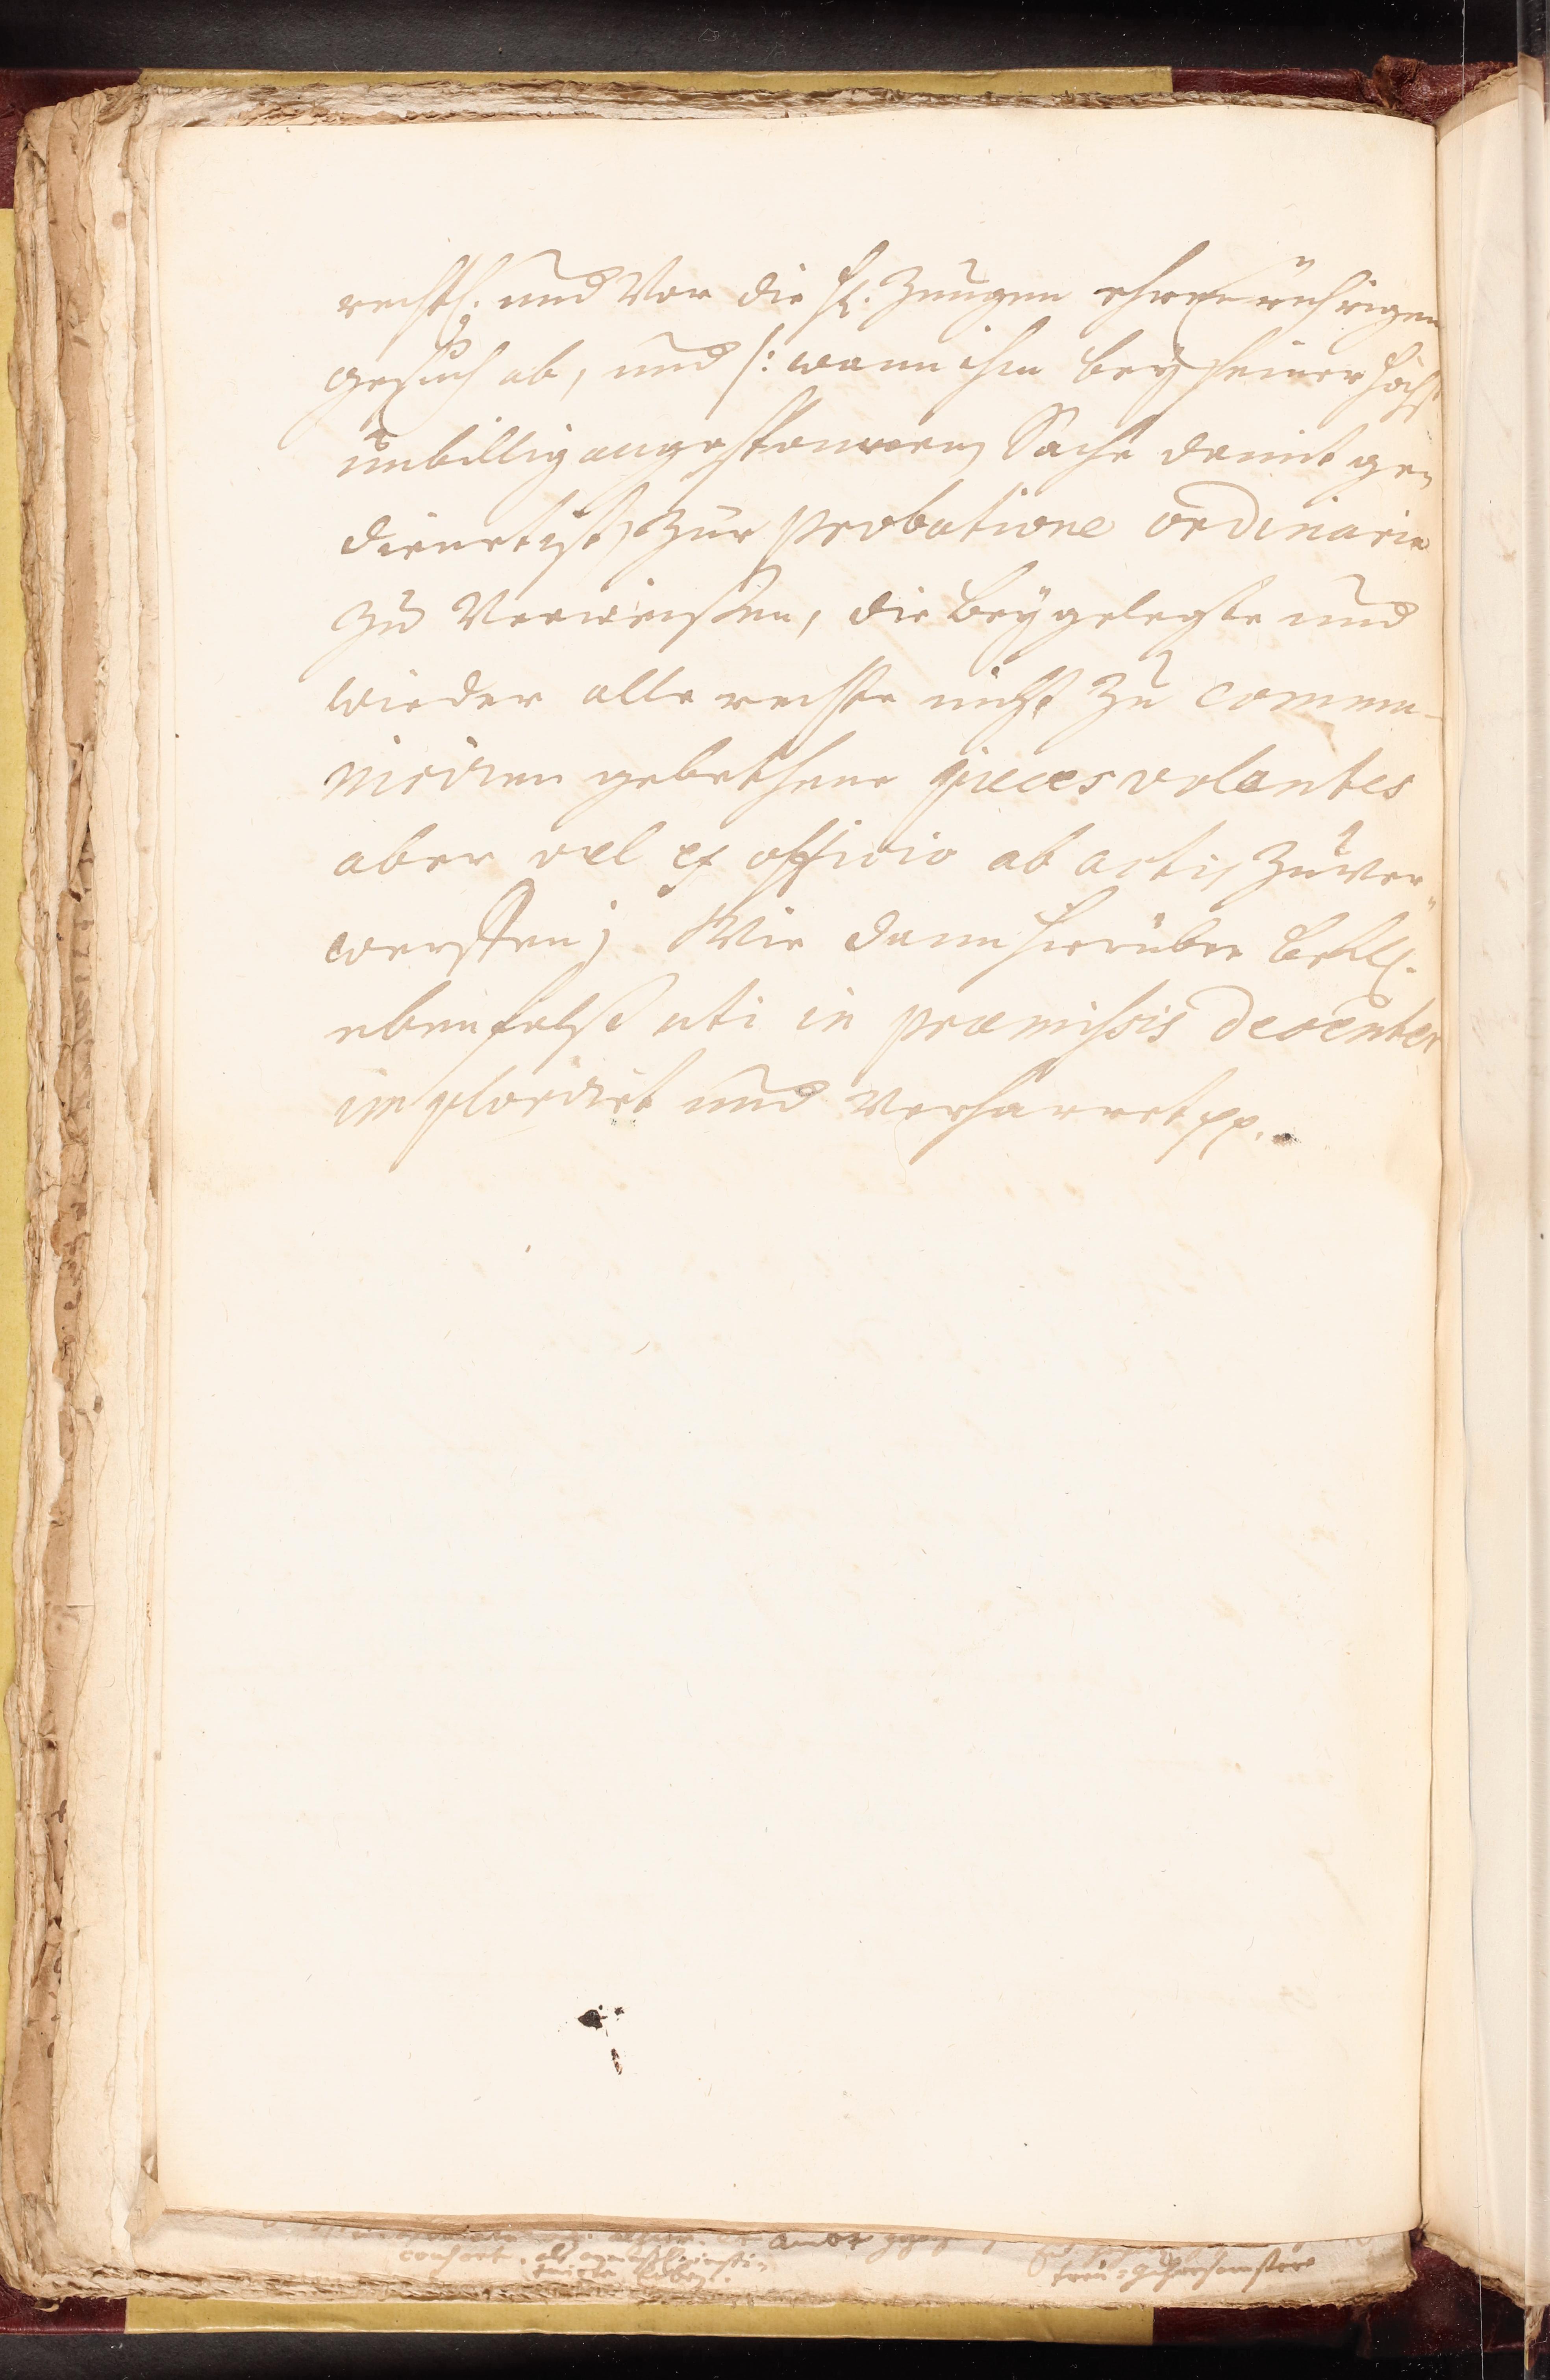 rechtl. und Vor die H. Zeugen ehren rührigen
gesuch ab, und /: wann ihm bey seiner höchst
unbillig angesponnenen Sache damit ge-
dienet ist, zur probatione ordinaria
zu Verweißen, die beygelegte und
wieder alle rechte nicht zu commu-
niciren gebethene pieces volantes
aber vel ex officio ab actis zu ver-
werffen; Wie dann hierüber bekl.
ebenfalß uti in præmissis decenter
imploriret und verharret pp.
consort.
treu-gehorsamster